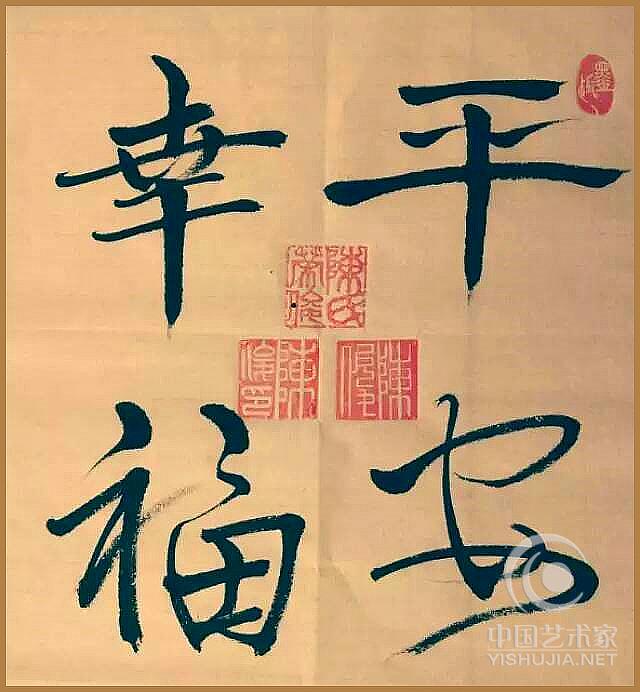 平安
幸福
陳
陳
陳氏
中国艺术家
YISHUJIA.NET